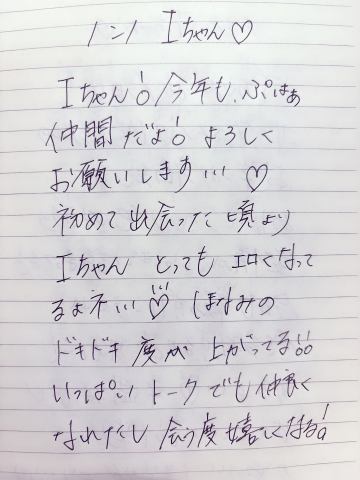 ノンノ Iちゃん♡
Iちゃん!今年も、ぷはぁ
仲間だよ!よろしく
お願いします…♡
初めて出会った頃より
Iちゃん とっても エロくなって
るよネ…♡ ほなみの
ドキドキ度が 上がってる!!
いっぱいトークでも仲良く
なれたし 会う度嬉しくなる!